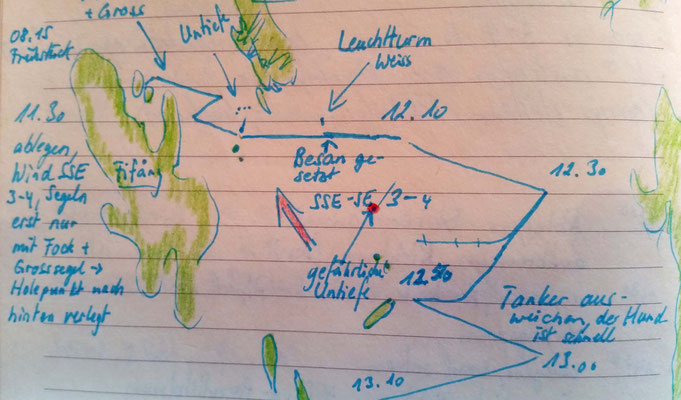 + Gross
08.15
Frühstück
Untiefe
Leuchtturm
Weiss
11.30
ablegen,
Wind SSE
3-4, Segeln
erst nur
mit Fock +
Grosssegel →
Holepunkt nach
hinten verlegt
Fifång
12.10
Besan ge-
setzt
SSE-SE 3-4
12.30
gefährliche
Untiefe
12.50
Tanker aus-
weichen, der Hund
ist schnell
13.00
13.10